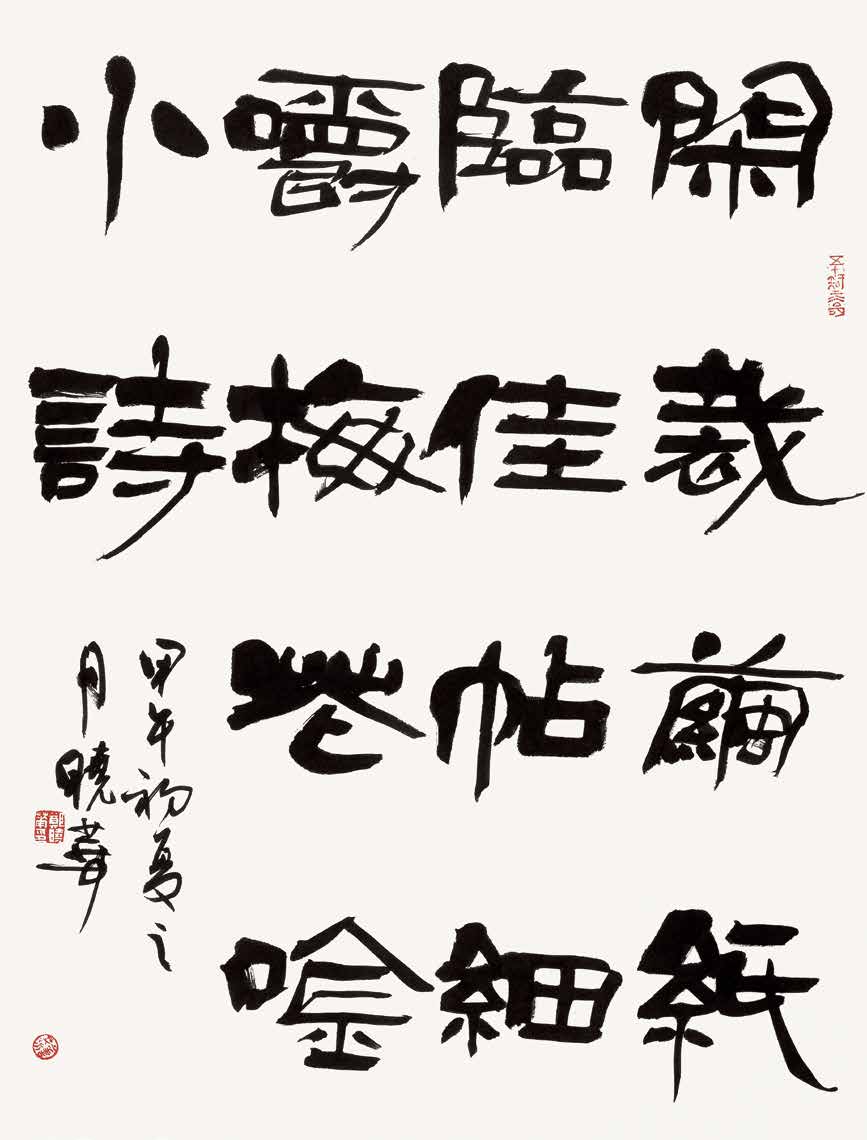 閑裁繭紙
臨佳帖細
嚼梅花唫
小詩
甲午初夏之
月曉華